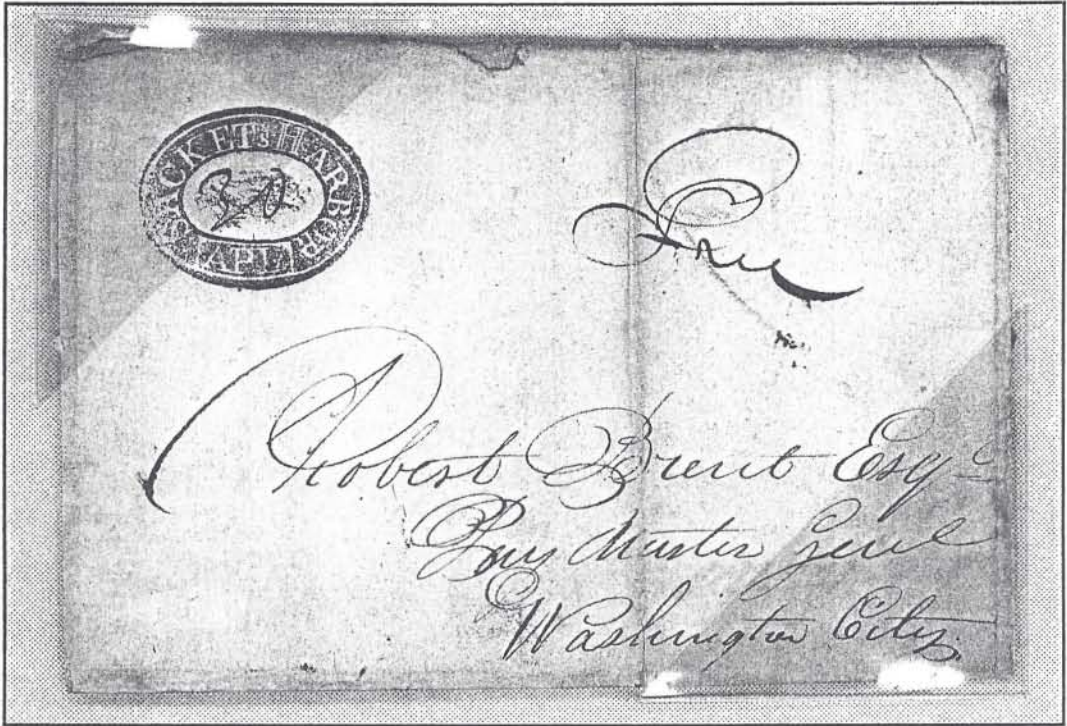 SACKETS HARBOR
30
APL
Free
Robert Brent Esqr
Pay Master Genl
Washington City.